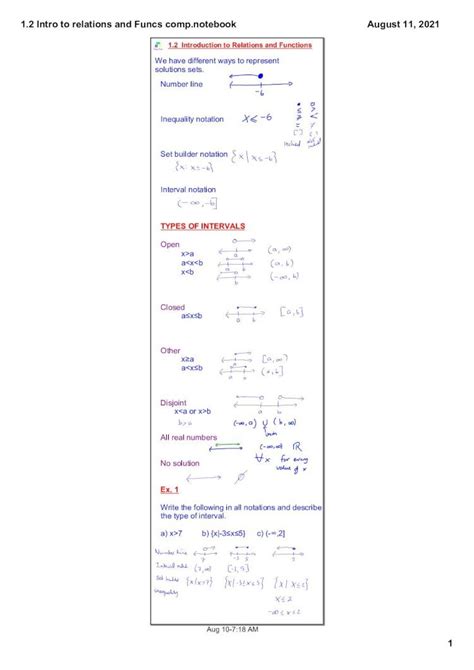 1.2 Intro to relations and Funcs comp.notebook
August 11, 2021
1.2 Introduction to Relations and Functions
We have different ways to represent
solutions sets.
Number line
-6
Inequality notation x≤-6
included
Set builder notation {x|x≤-6}
{x: x≤-6}
Interval notation
(-∞,-6]
TYPES OF INTERVALS
Open
x>a (a,∞)
a<x<b (a,b)
x<b
Closed
a≤x≤b [a,b]
Other
x≥a [a,∞)
a<x≤b
Disjoint
x<a or x>b
b>a (-∞,a) ∪ (b,∞)
All real numbers (-∞,∞) ℝ
∀x for every
value of x
No solution ∅
Ex. 1
Write the following in all notations and describe
the type of interval.
a) x>7 b) {x|-3≤x≤5} c) (-∞,2]
Number line
(7,∞) [-3,5]
Set builder {x|x>7} {x|-3≤x≤5} {x|x≤2}
inequality x≤2
-∞<x≤2
Aug 10-7:18 AM
1